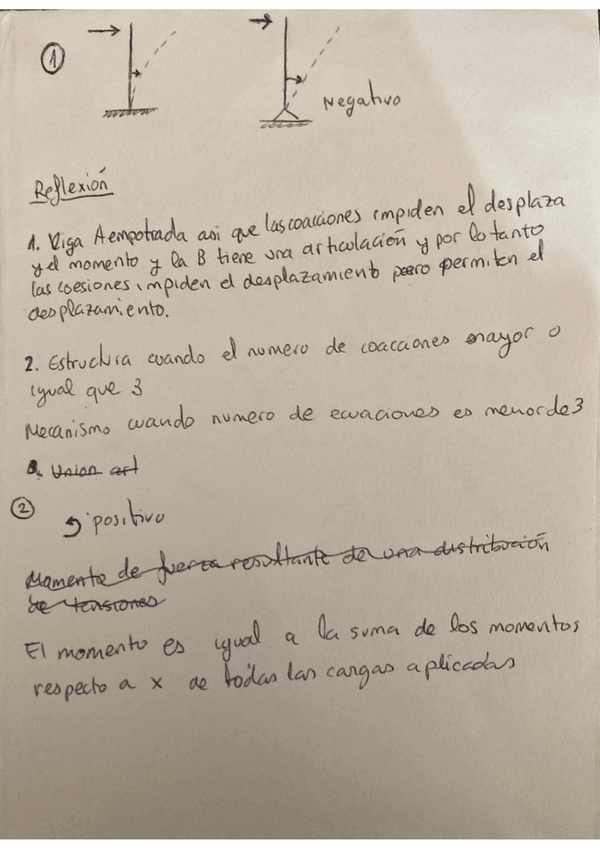 1
Negativo
Reflexión
1. Viga A empotrada asi que las coacciones impiden el desplaza
y el momento y la B tiene una articulación y por lo tanto
las coesiones impiden el desplazamiento pero permiten el
desplazamiento.
2. Estructura cuando el numero de coacciones mayor o
igual que 3
Mecanismo cuando numero de ecuaciones es menor de 3
Union art
2
positivo
Momento de fuerza resultante de una distribución
de tensiones
El momento es igual a la suma de los momentos
respecto a x de todas las cargas aplicadas